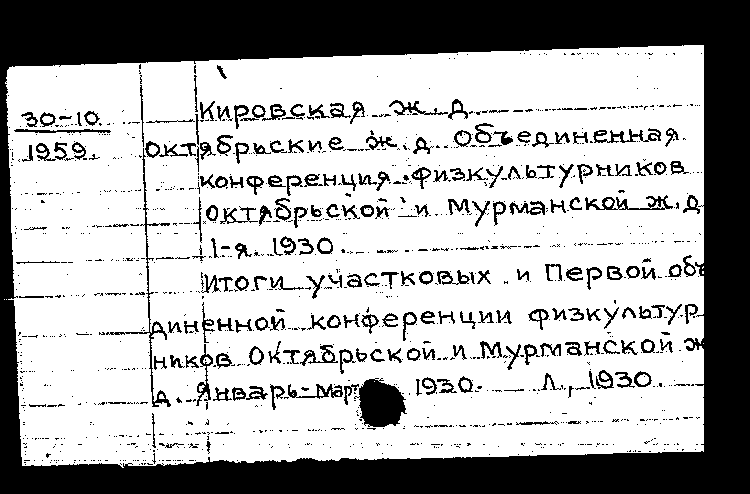 Кировская ж.д
30-10. 
1959. Октябрьские ж.д. Объединенная
конференция физкультурников
Октябрьской и Мурманской ж.д
1-я. 1930.
Итоги участковых и Первой объ
диненной конференции физкультур
ников Октябрьской и Мурманской ж
д. Январь-март 1930. Л., 1930.